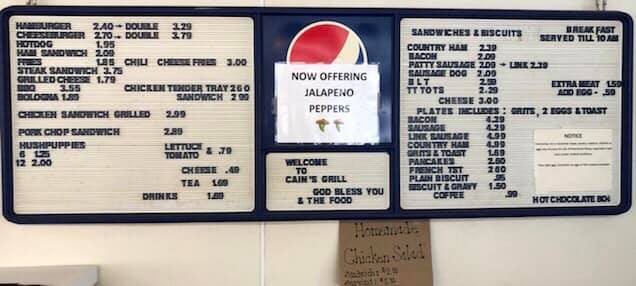 HAMBURGER 2.40 - DOUBLE 3.29
CHEESEBURGER 2.70 - DOUBLE 3.79
HOTDOG 1.95
HAM SANDWICH 2.09
FRIES 1.85 CHILI CHEESE FRIES 3.00
STEAK SANDWICH 3.75
GRILLED CHEESE 1.79
BBQ 3.55 CHICKEN TENDER TRAY 2.60
BOLOGNA 1.89 SANDWICH 2.99
CHICKEN SANDWICH GRILLED 2.99
PORK CHOP SANDWICH 2.89
HUSHPUPPIES
6 1.25
12 2.00
LETTUCE
TOMATO & .79
CHEESE .49
TEA 1.69
DRINKS 1.89
NOW OFFERING
JALAPENO
PEPPERS
WELCOME
TO
CAIN'S GRILL
GOD BLESS YOU
& THE FOOD
SANDWICHES & BISCUITS
BREAKFAST
SERVED TILL 10 AM
COUNTRY HAM 2.39
BACON 2.09
PATTY SAUSAGE 2.09 - LINK 2.39
SAUSAGE DOG 2.09
BLT
TT TOTS 2.29
CHEESE 3.00
EXTRA MEAT
ADD EGG - .59
PLATES INCLUDES: GRITS, 2 EGGS & TOAST
BACON 4.29
SAUSAGE 4.29
LINK SAUSAGE 4.99
COUNTRY HAM 4.99
GRITS & TOAST 1.89
PANCAKES 2.80
FRENCH TST 2.60
PLAIN BISCUIT .95
BISCUIT & GRAVY 1.50
COFFEE .99
HOT CHOCOLATE 80¢
NOTICE
Homemade
Chicken Salad